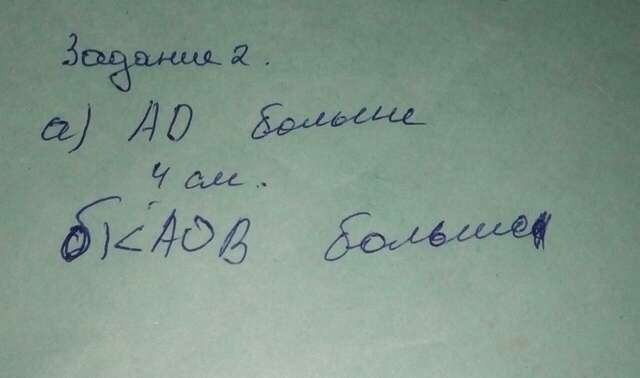 Задание 2.
а) AD больше
4 см.
б) <AOB больше